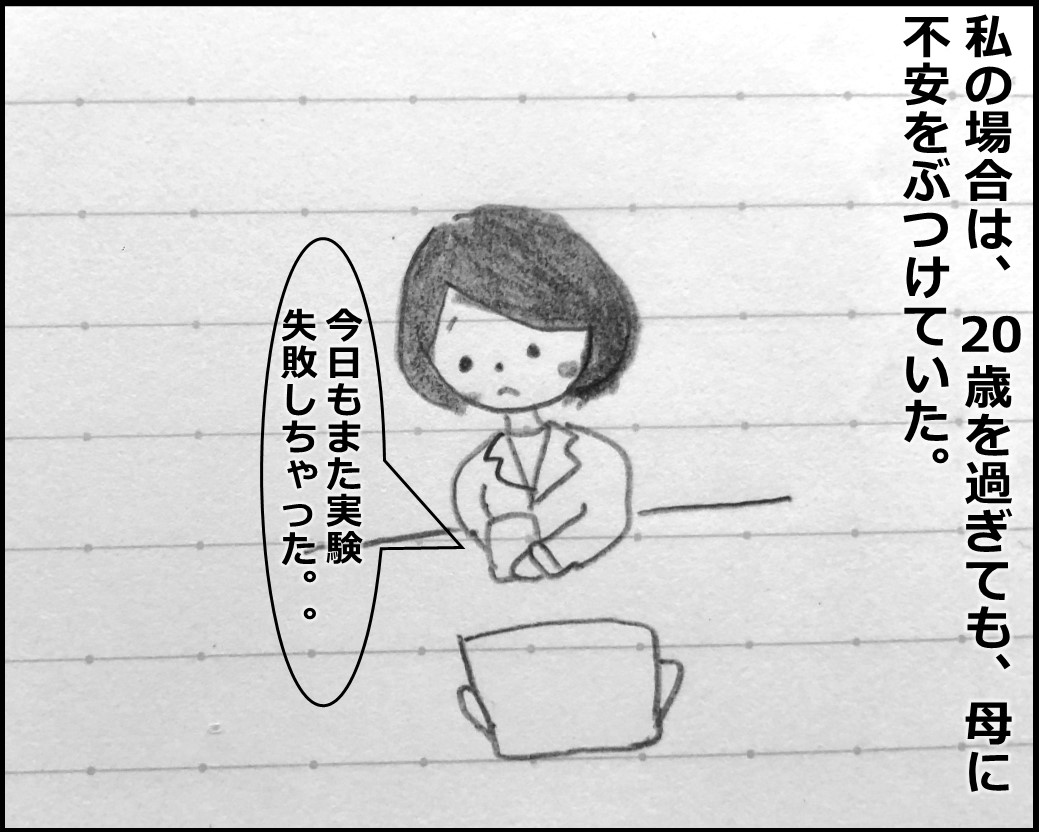 私の場合は、20歳を過ぎても、母に
不安をぶつけていた。
今日もまた実験
失敗しちゃった。。